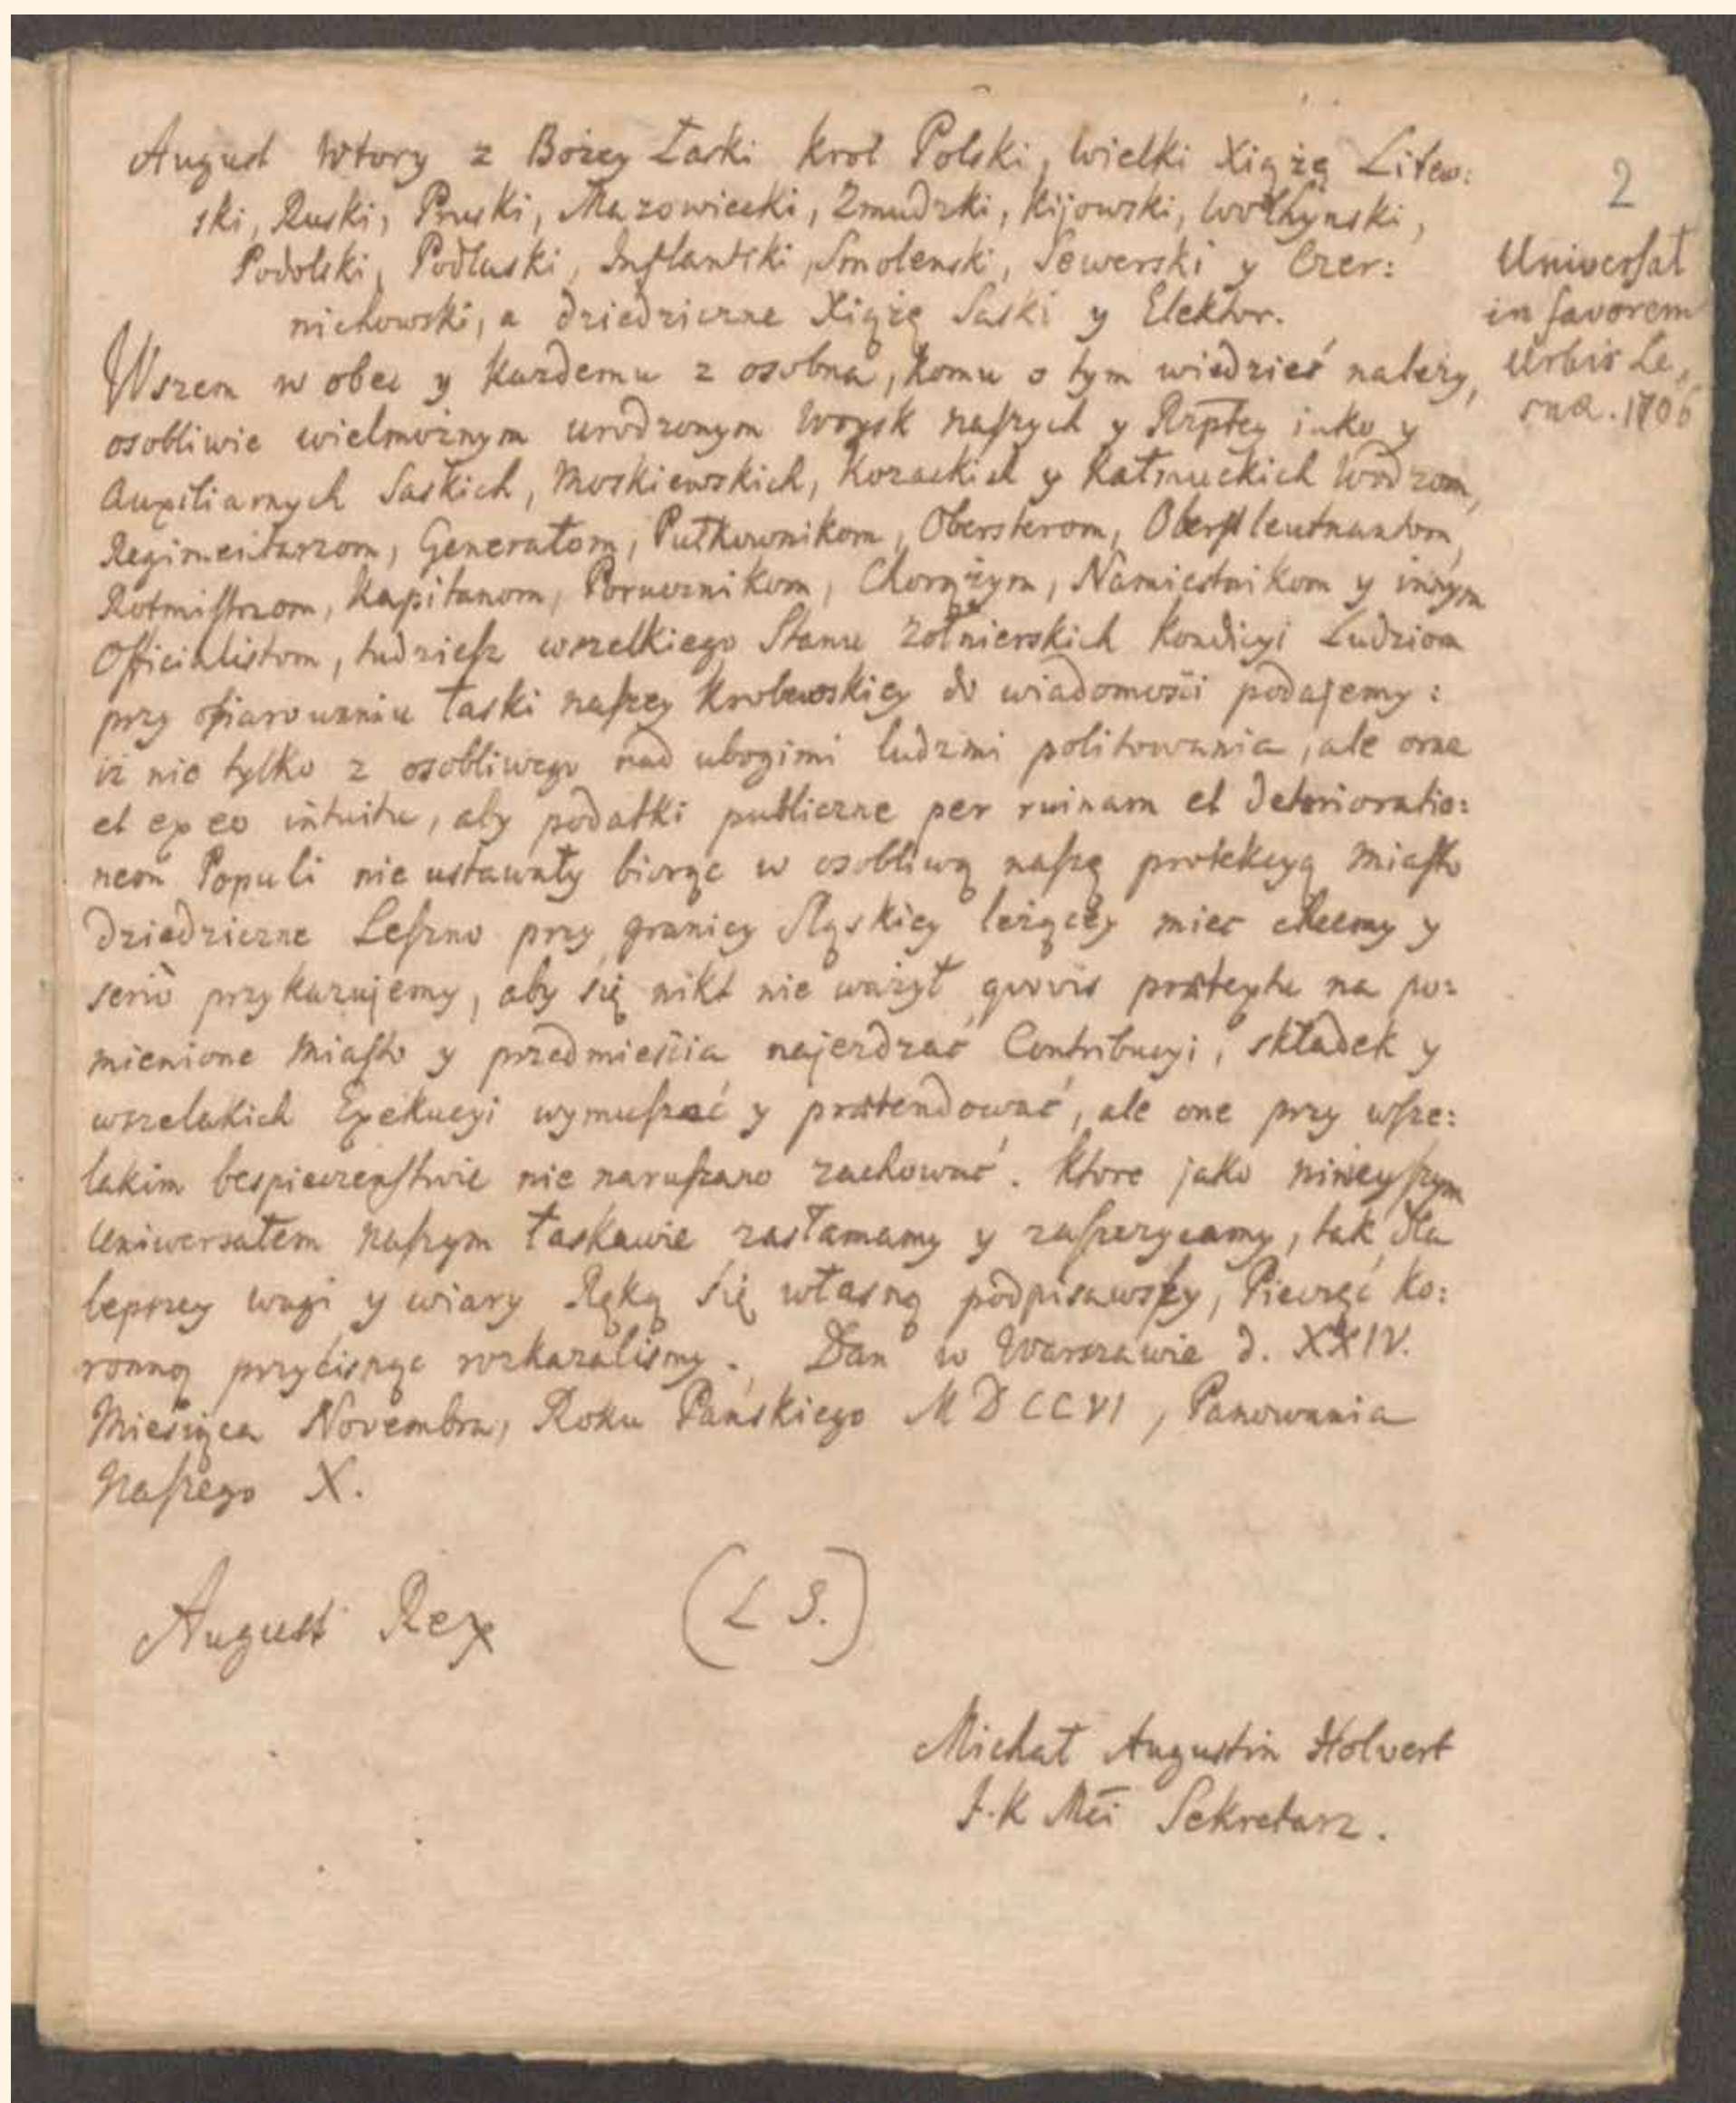 August Wtory z Bożey Łaski Krol Polski, Wielki Xiążę Litew:
ski, Ruski, Pruski, Mazowiecki, Zmudzki, Kijowski, Wołhynski,
Podolski, Podlaski, Inflantski, Smolenski, Sewerski y Czer:
nichowski, a dziedziczne Xiążę Saski y Elektor.
2
Universał
in favorem
Urbis Le,
snæ. 1706
Wszem w obec y Kazdemu z osobna, komu o tym wiedzieć należy,
osobliwie wielmożnym urodzonym Woysk naszych y Rzptey iako y
Auxiliarnych Saskich, Moskiewskich, Kozackich y Kałmuckich Wodzom,
Regimentarzom, Generałom, Pułkownikom, Obersterom, Oberstleutnantom,
Rotmistrzom, Kapitanom, Porucznikom, Chorążym, Namiestnikom y inszym
Officialistom, tudziesz wszelkiego Stanu Zołnierskich Kondicyi Ludziom
przy ofiarowaniu łaski naszey Krolewskiey do wiadomości podajemy:
iż nie tylko z osobliwego nad ubogimi ludzmi politowania, ale oraz
et ex eo intuitu, aby podatki publiczne per ruinam et deterioratio:
nem Populi nie ustawały biorąc w osobliwą naszę protekcyą Miasto
dziedziczne Leszno przy granicy Sląskiey leżącey mieć chcemy y
serio przykazujemy, aby się nikt nie ważył quovis prætextu na po:
mienione Miasto y przedmieścia najezdzać Contribucyi, składek y
wszelakich Exekucyi wymuszać y prætendować, ale one przy wsze:
lakim bespieczenstwie nie naruszano zachować. Ktore jako ninieyszym
Uniwersałem naszym łaskawie zasłamamy y zaszczycamy, tak dla
lepszey wagi y wiary Ręką się własną podpisawszy, Pieczęć Ko:
ronną przycisnąc rozkazalismy. Dan w Warszawie d. XXIV.
Miesiąca Novembra, Roku Pańskiego MDCCVI, Panowania
Naszego X.
August Rex
(L S.)
Michał Augustin Holvert
J.K Mći Sekretarz.